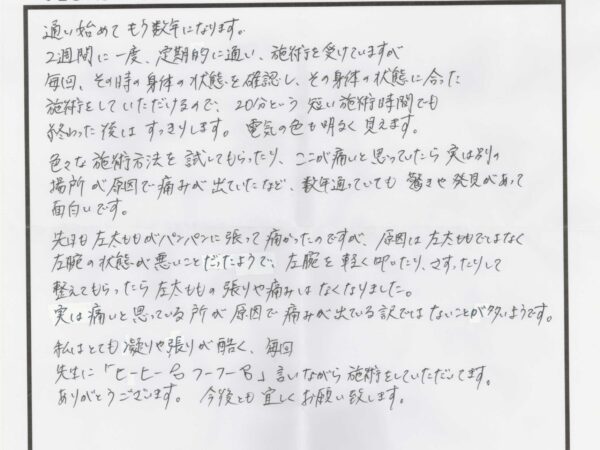 通い始めてもう数年になります。
2週間に一度、定期的に通い、施術を受けていますが
毎回、その時の身体の状態を確認し、その身体の状態に合った
施術をしていただけるので、20分という短い施術時間でも
終わった後はすっきりします。電気の色も明るく見えます。
色々な施術方法を試してもらったり、ここが痛いと思っていたら実は別の
場所が原因で痛みが出ていたなど、数年通っていても驚きや発見があって
面白いです。
先日も左太ももがパンパンに張って痛かったのですが、原因は左太ももではなく
左腕の状態が悪いことだったようで、左腕を軽く叩いたり、さすったりして
整えてもらったら左太ももの張りや痛みはなくなりました。
実は痛いと思っている所が原因で痛みが出ている訳ではないことが多いようです。
私はとても凝りや張りが酷く、毎回
先生に「ヒーヒー フーフー」言いながら施術をしていただいてます。
ありがとうございます。今後とも宜しくお願い致します。